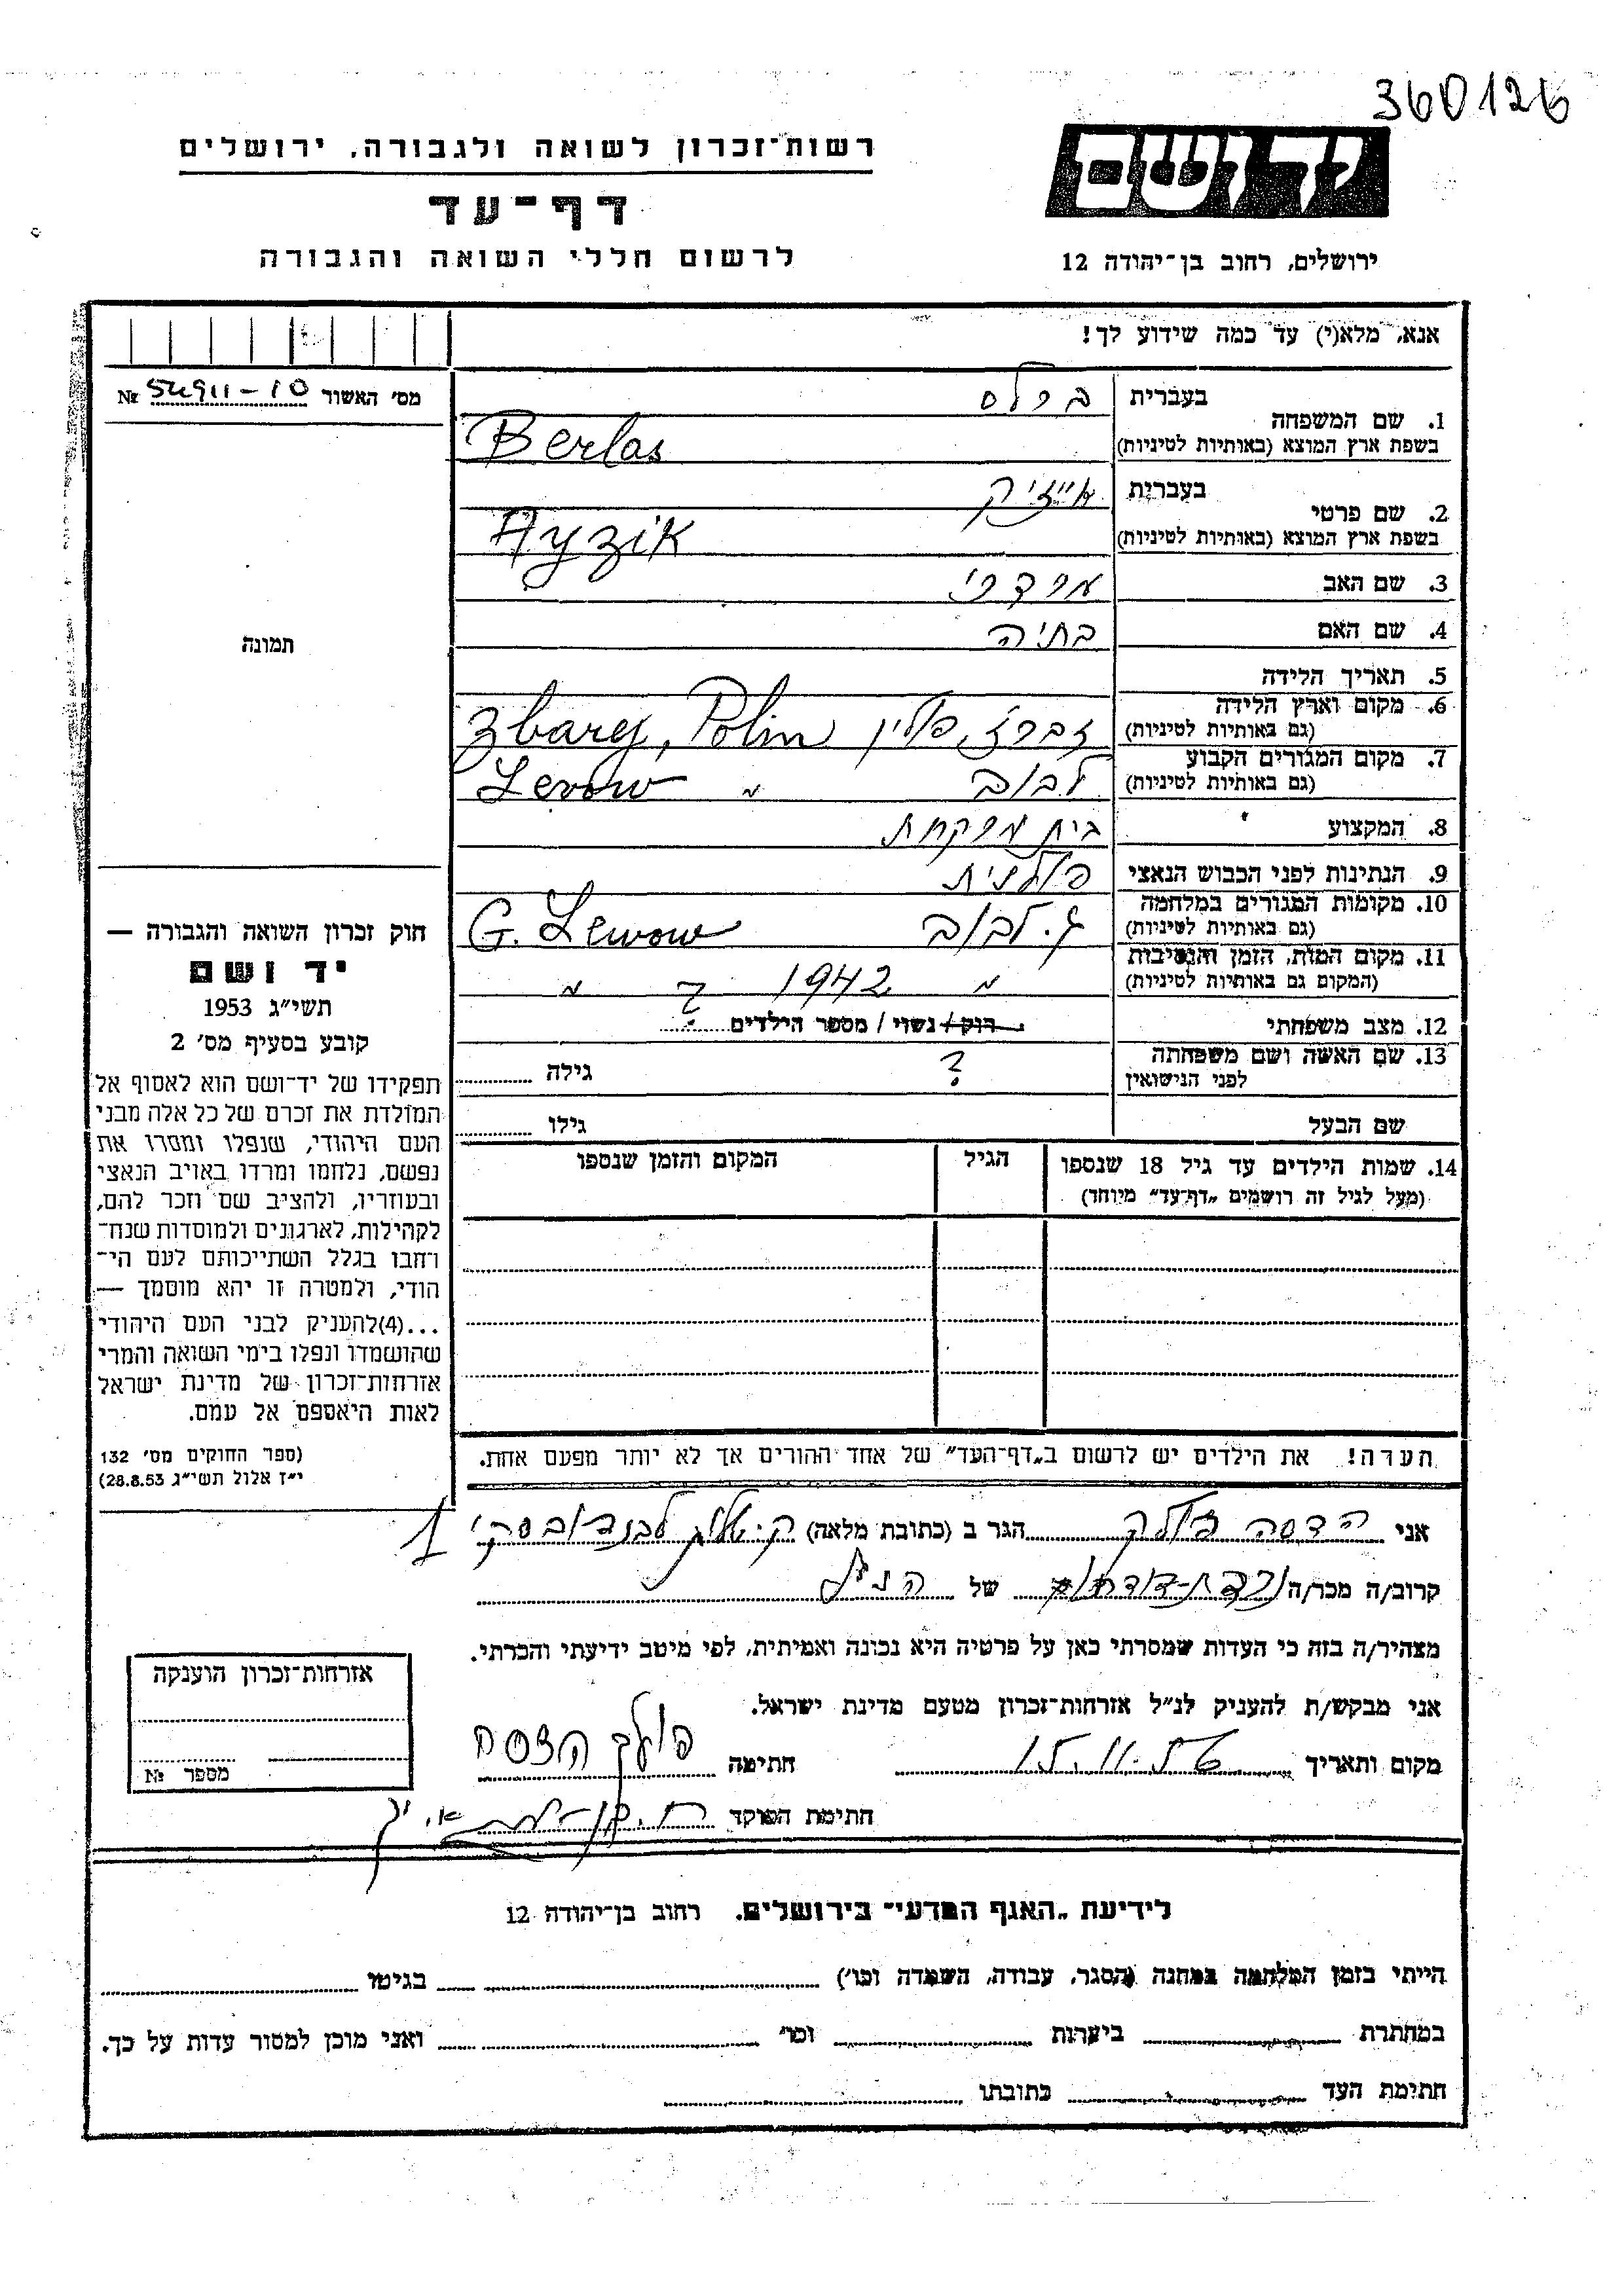 360126
יד ושם
רשות־זכרון לשואה ולגבורה, ירושלים
דף־עד
לרשום חללי השואה והגבורה
ירושלים, רחוב בן־יהודה 12
אנא, מלא(י) עד כמה שידוע לך!
מס' האשור 54911-10 №
תמונה
1. שם המשפחה
בעברית ברלס
בשפת ארץ המוצא (באותיות לטיניות) Berlas
2. שם פרטי
בעברית אייזיק
בשפת ארץ המוצא (באותיות לטיניות) Ayzik
3. שם האב מרדכי
4. שם האם בתיה
5. תאריך הלידה
6. מקום וארץ הלידה
(גם באותיות לטיניות) זברז, פולין Zbarez, Polin
7. מקום המגורים הקבוע
(גם באותיות לטיניות) לבוב " Levow
8. המקצוע בית מרקחת
9. הנתינות לפני הכבוש הנאצי פולנית
10. מקומות המגורים במלחמה
(גם באותיות לטיניות) ג. לבוב G. Lewow
11. מקום המות, הזמן והנסיבות
(המקום גם באותיות לטיניות) " 1942 ? "
12. מצב משפחתי רוק / נשוי / מספר הילדים ?
13. שם האשה ושם משפחתה
לפני הנישואין ? גילה
שם הבעל גילו
14. שמות הילדים עד גיל 18 שנספו הגיל המקום והזמן שנספו
(מעל לגיל זה רושמים "דף־עד" מיוחד)
הערה! את הילדים יש לרשום ב"דף־העד" של אחד ההורים אך לא יותר מפעם אחת.
חוק זכרון השואה והגבורה —
יד ושם
תשי"ג 1953
קובע בסעיף מס' 2
תפקידו של יד־ושם הוא לאסוף אל
המולדת את זכרם של כל אלה מבני
העם היהודי, שנפלו ומסרו את
נפשם, נלחמו ומרדו באויב הנאצי
ובעוזריו, ולהציב שם וזכר להם,
לקהילות, לארגונים ולמוסדות שנח־
רחבו בגלל השתייכותם לעם הי־
הודי, ולמטרה זו יהא מוסמך —
...(4)להעניק לבני העם היהודי
שהושמדו ונפלו בימי השואה והמרי
אזרחות־זכרון של מדינת ישראל
לאות היאספם אל עמם.
(ספר החוקים מס' 132
י"ז אלול תשי"ג 28.8.53)
אני הדסה פולק הגר ב (כתובת מלאה) ק.
קרוב/ה מכר/ה של הנ"ל
מצהיר/ה בזה כי העדות שמסרתי כאן על פרטיה היא נכונה ואמיתית, לפי מיטב ידיעתי והכרתי.
אני מבקש/ת להעניק לנ"ל אזרחות־זכרון מטעם מדינת ישראל.
מקום ותאריך חתימה פולק הדסה
חתימת הפוקד
אזרחות־זכרון הוענקה
מספר №
לידיעת "האגף המדעי" בירושלים. רחוב בן־יהודה 12
הייתי בזמן המלחמה במחנה (הסגר, עבודה, השמדה וכו') בגיטו
במחתרת ביערות וכו' ואני מוכן למסור עדות על כך.
חתימת העד כתובתו